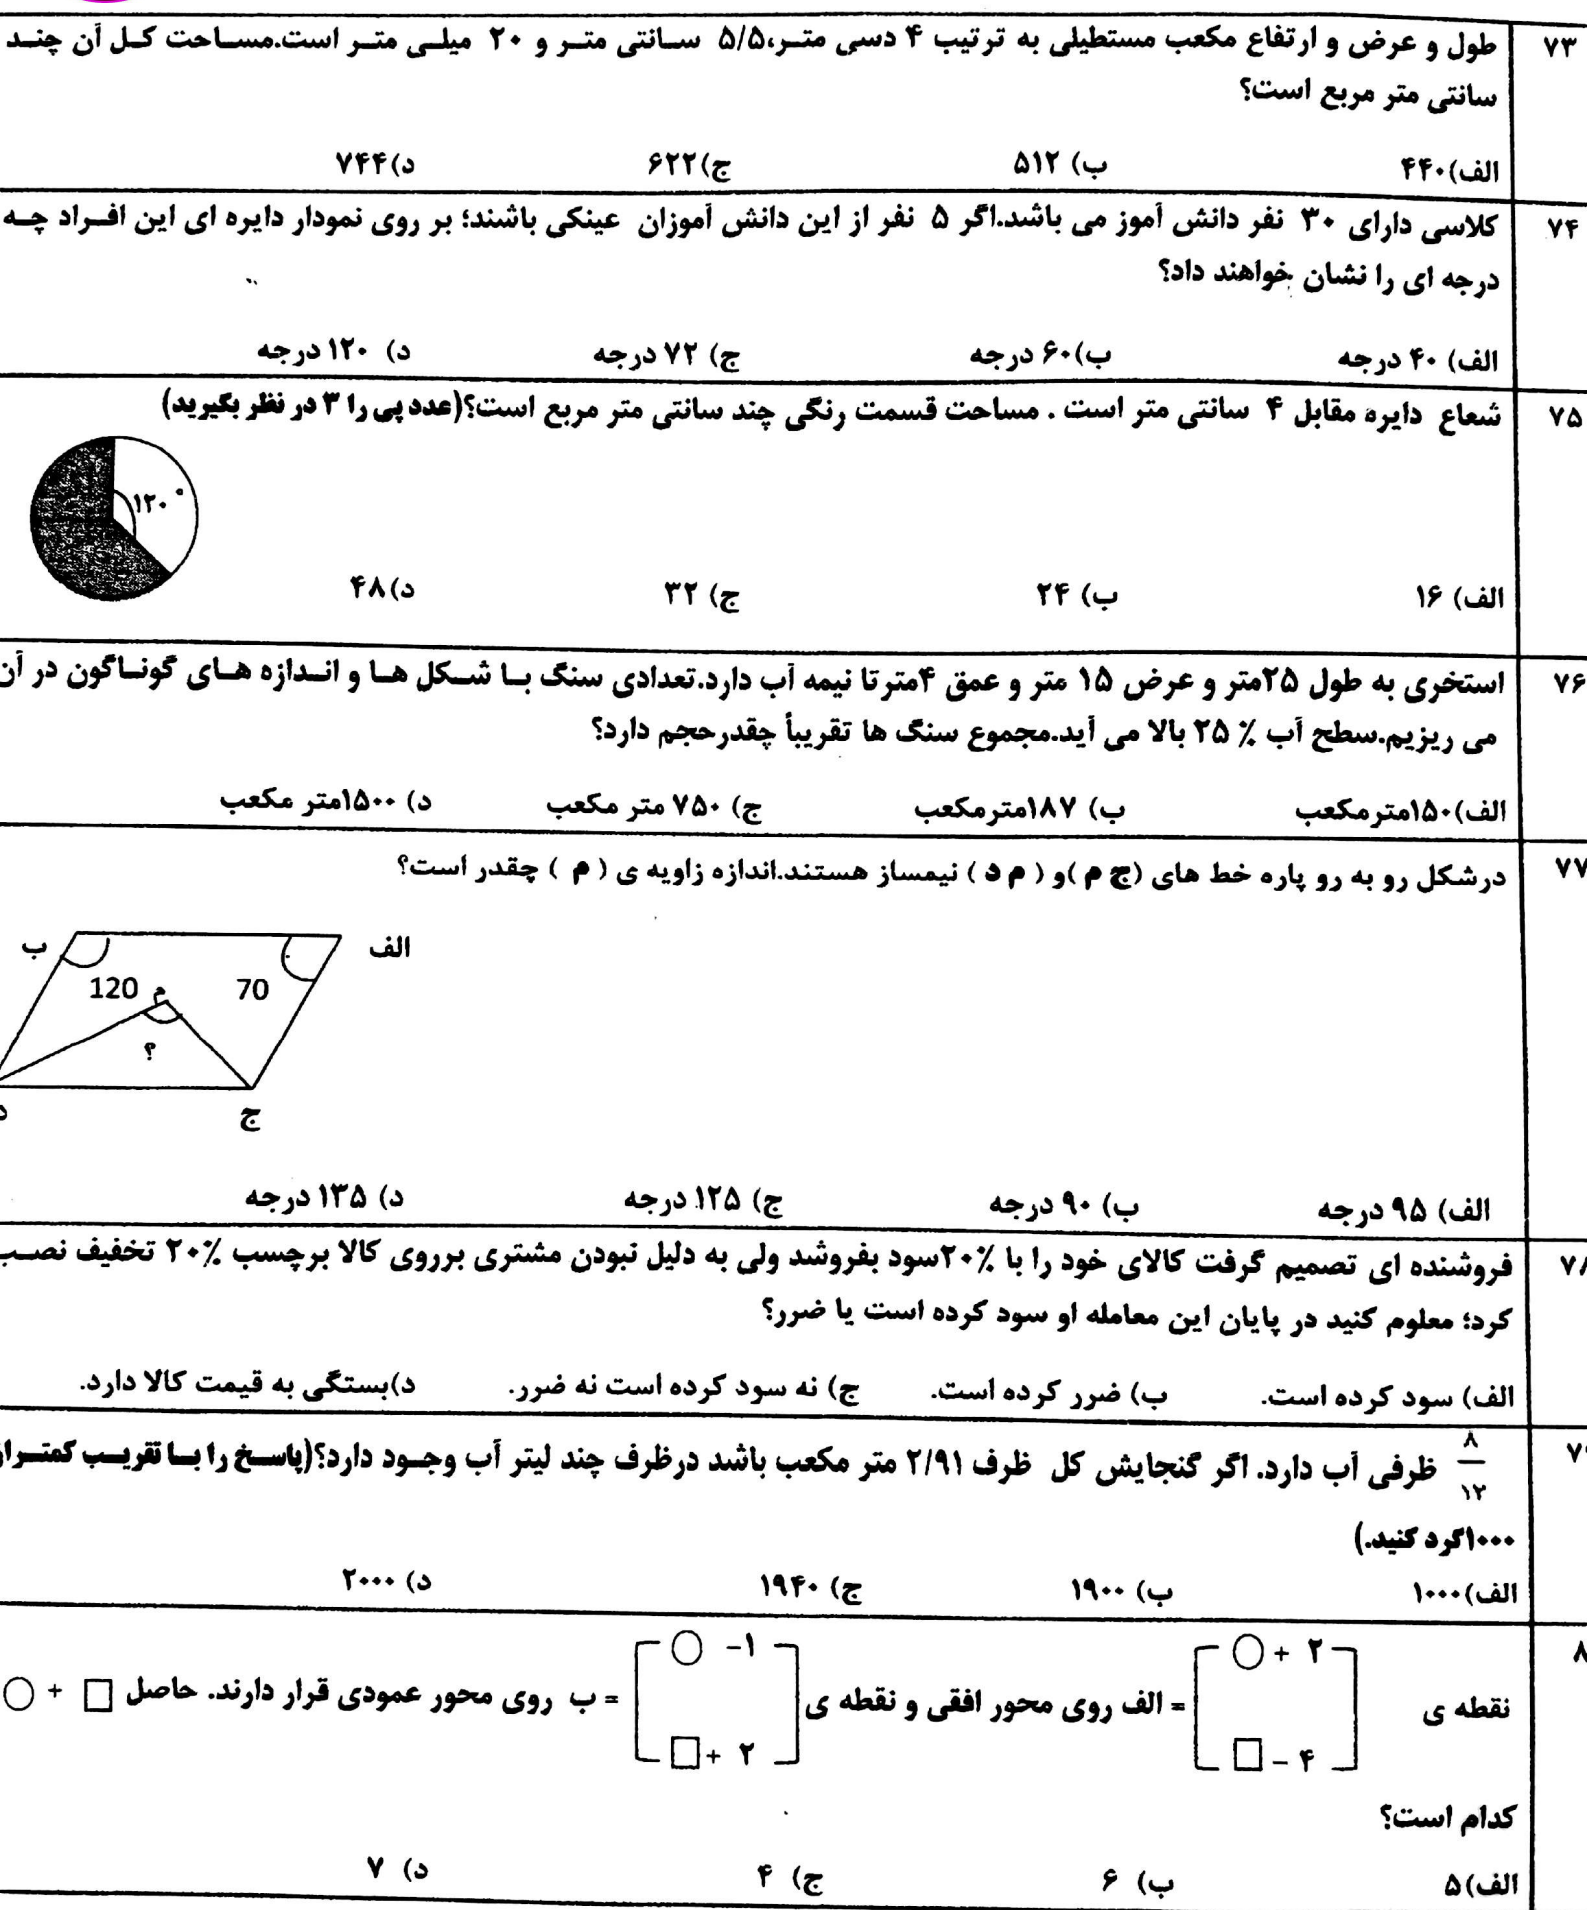 ۷۳ طول و عرض و ارتفاع مکعب مستطیلی به ترتیب ۴ دسی متر،۵/۵ سانتی متر و ۲۰ میلی متر است.مساحت کل آن چند
سانتی متر مربع است؟
الف)۴۴۰ ب) ۵۱۲ ج)۶۲۲ د)۷۴۴
۷۴ کلاسی دارای ۳۰ نفر دانش آموز می باشد.اگر ۵ نفر از این دانش آموزان عینکی باشند؛ بر روی نمودار دایره ای این افراد چه
درجه ای را نشان خواهند داد؟
الف) ۴۰ درجه ب)۶۰ درجه ج) ۷۲ درجه د) ۱۲۰ درجه
۷۵ شعاع دایره مقابل ۴ سانتی متر است . مساحت قسمت رنگی چند سانتی متر مربع است؟(عدد پی را ۳ در نظر بگیرید)
۱۲۰°
الف) ۱۶ ب) ۲۴ ج) ۳۲ د)۴۸
۷۶ استخری به طول ۲۵متر و عرض ۱۵ متر و عمق ۴متر تا نیمه آب دارد.تعدادی سنگ با شکل ها و اندازه های گوناگون در آن
می ریزیم.سطح آب ۲۵ ٪ بالا می آید.مجموع سنگ ها تقریباً چقدرحجم دارد؟
الف)۱۵۰مترمکعب ب) ۱۸۷مترمکعب ج) ۷۵۰ متر مکعب د) ۱۵۰۰متر مکعب
۷۷ درشکل رو به رو پاره خط های (ج م )و ( م د ) نیمساز هستند.اندازه زاویه ی ( م ) چقدر است؟
ب الف
120 م 70
؟
ج
الف) ۹۵ درجه ب) ۹۰ درجه ج) ۱۲۵ درجه د) ۱۳۵ درجه
فروشنده ای تصمیم گرفت کالای خود را با ۲۰٪سود بفروشد ولی به دلیل نبودن مشتری برروی کالا برچسب ۲۰٪ تخفیف نصب
کرد؛ معلوم کنید در پایان این معامله او سود کرده است یا ضرر؟
الف) سود کرده است. ب) ضرر کرده است. ج) نه سود کرده است نه ضرر. د)بستگی به قیمت کالا دارد.
۸/۱۲ ظرفی آب دارد. اگر گنجایش کل ظرف ۲/۹۱ متر مکعب باشد درظرف چند لیتر آب وجود دارد؟(پاسخ را با تقریب کمتراز
۱۰۰۰گرد کنید.)
الف)۱۰۰۰ ب) ۱۹۰۰ ج) ۱۹۴۰ د) ۲۰۰۰
○ + ۲ ○ -۱
نقطه ی = الف روی محور افقی و نقطه ی = ب روی محور عمودی قرار دارند. حاصل □ + ○
□ - ۴ □ + ۲
کدام است؟
الف)۵ ب) ۶ ج) ۴ د) ۷